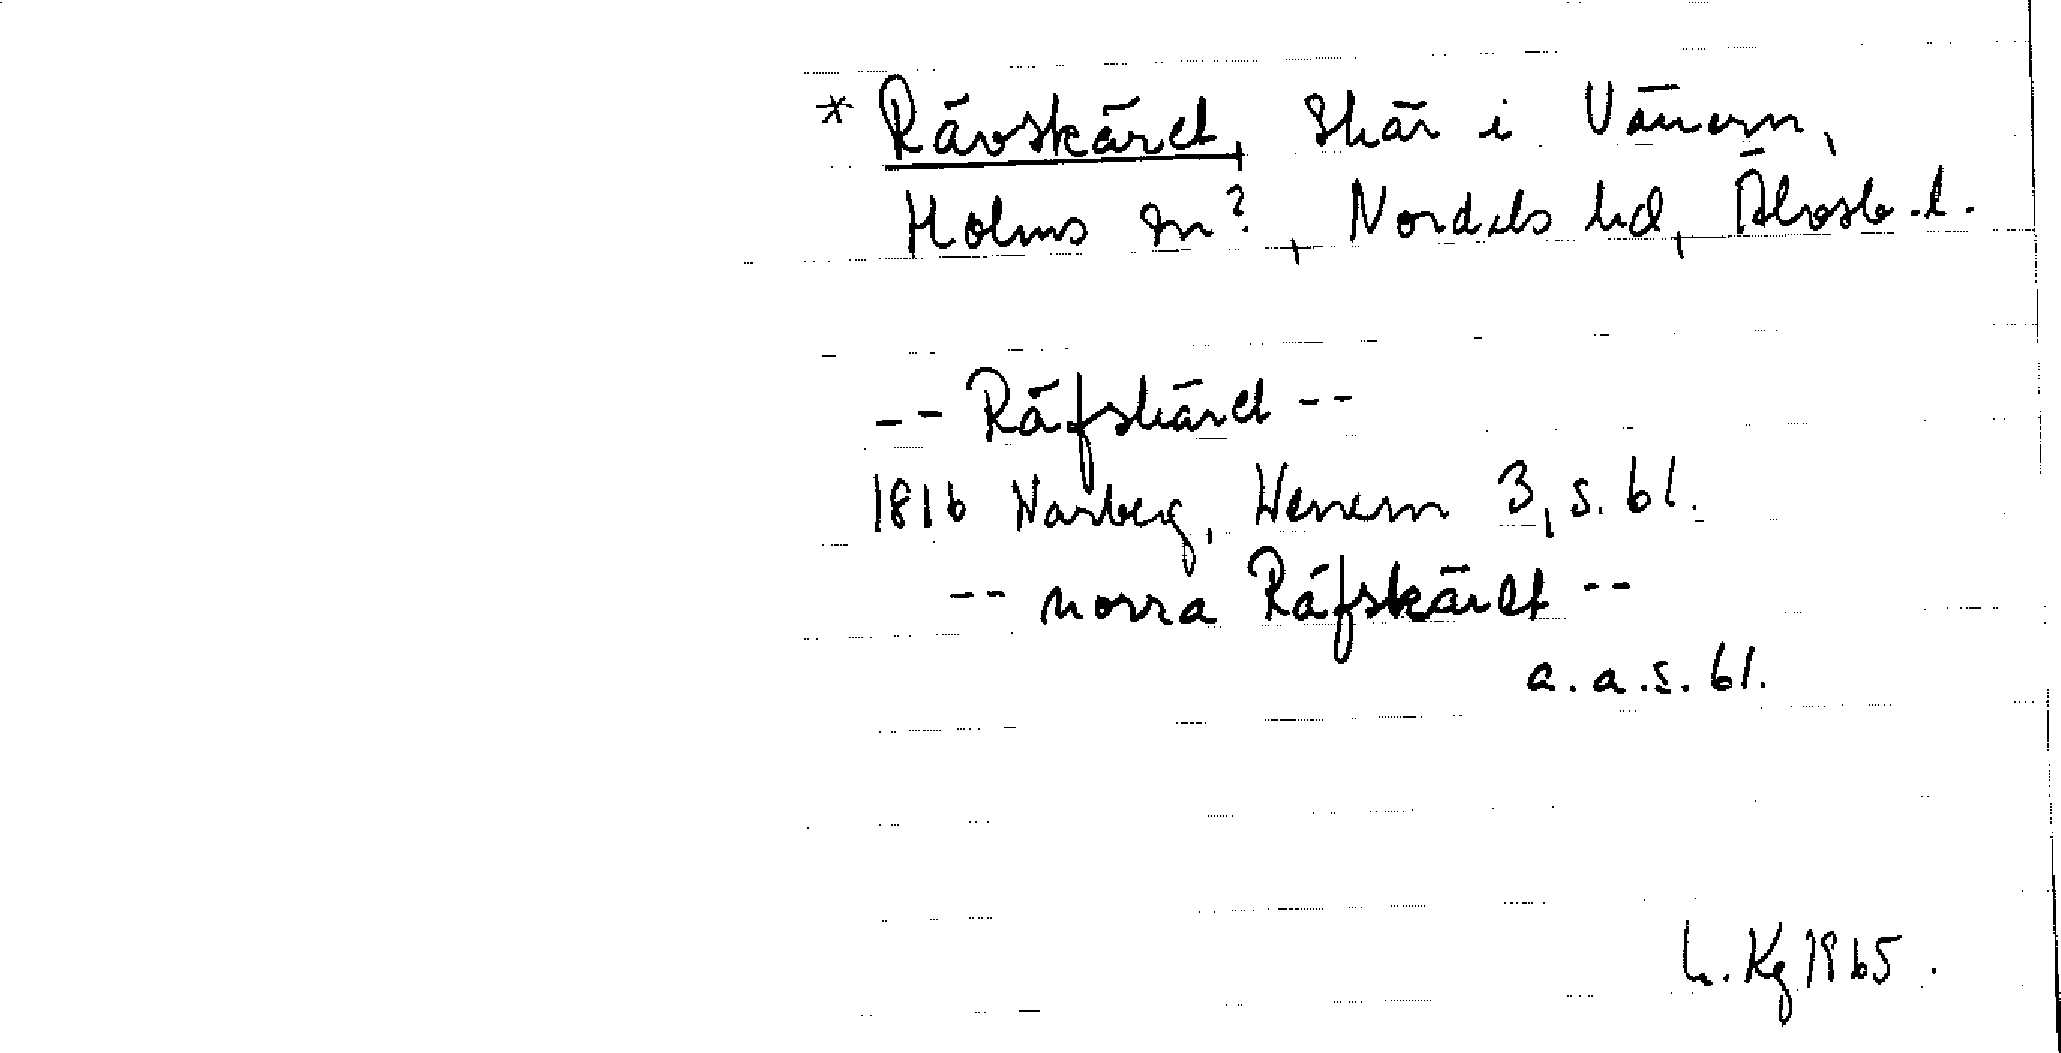 * Rävskäret, Skär i Vänern,
Holms sn?, Nordals hd, Älvsb. l.
-- Räfskäret --
1816 Warberg, Wenern 3, s. 61.
-- norra Räfskäret --
a.a.s. 61.
L. Kg 1965.